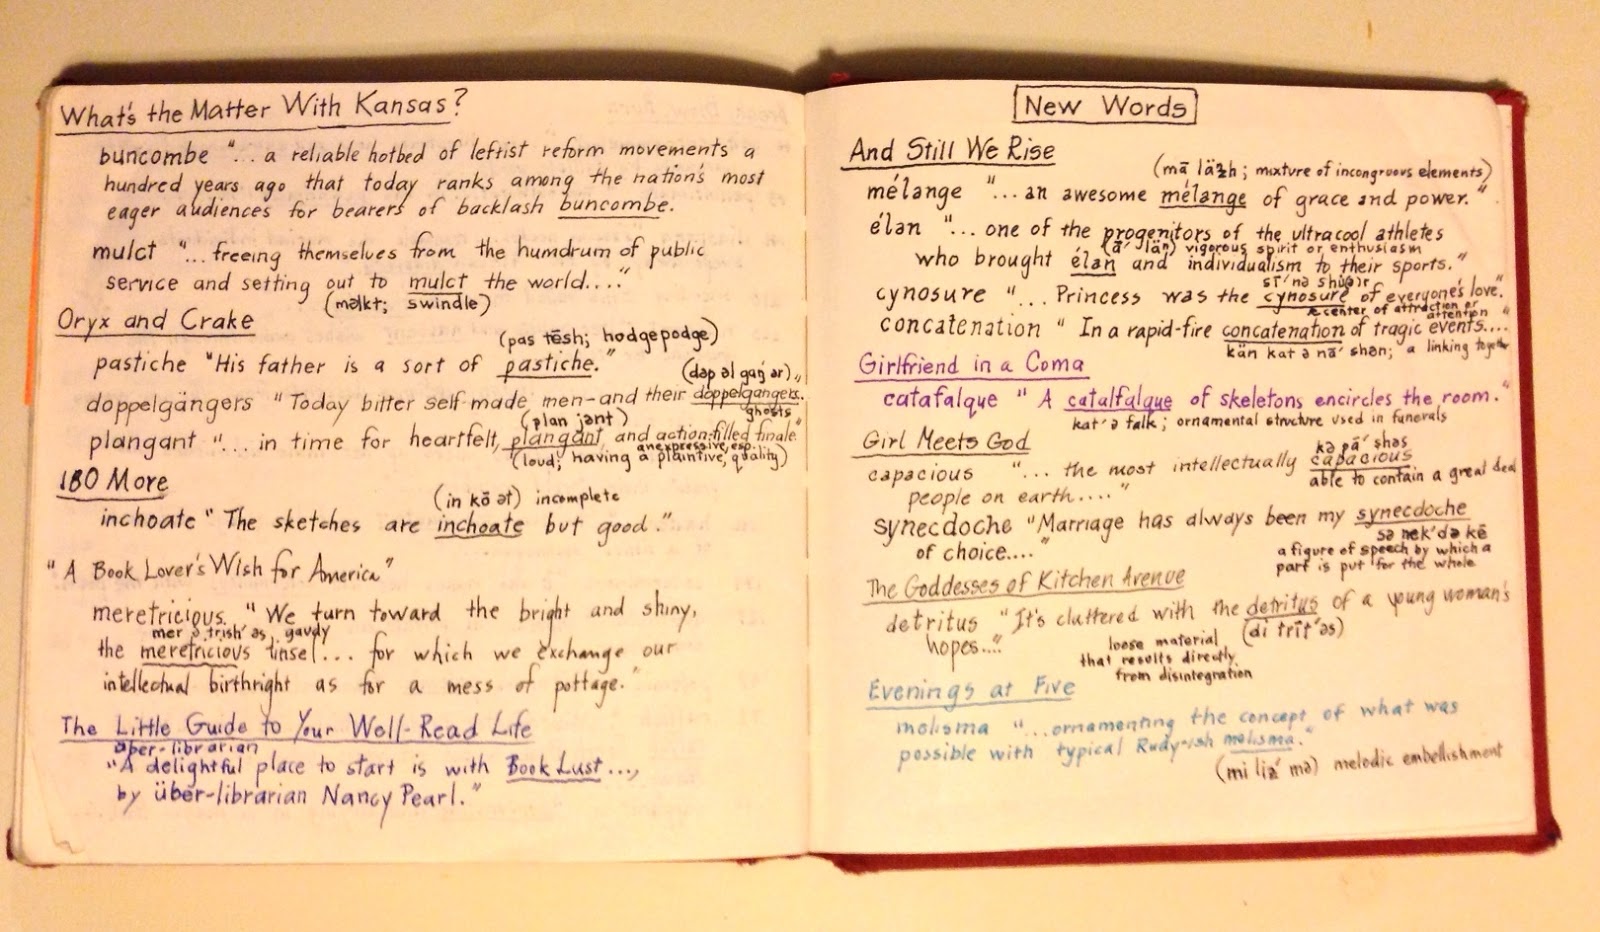 What's the Matter With Kansas?
buncombe "... a reliable hotbed of leftist reform movements a
hundred years ago that today ranks among the nation's most
eager audiences for bearers of backlash buncombe.
mulct "... freeing themselves from the humdrum of public
service and setting out to mulct the world...."
(məlkt; swindle)
Oryx and Crake
(pas tēsh; hodgepodge)
pastiche "His father is a sort of pastiche."
(dəp əl gaŋ ər)
doppelgängers "Today bitter self-made men-and their doppelgängers."
ghosts
(plan jənt)
plangant "... in time for heartfelt, plangant and action-filled finale."
an expressive, esp.
(loud; having a plaintive, quality)
180 More
(in kō ət) incomplete
inchoate "The sketches are inchoate but good."
"A Book Lover's Wish for America"
meretricious. "We turn toward the bright and shiny,
mer ə trish'əs, gaudy
the meretricious tinsel... for which we exchange our
intellectual birthright as for a mess of pottage."
The Little Guide to Your Well-Read Life
über-librarian
"A delightful place to start is with Book Lust...,
by über-librarian Nancy Pearl."
New Words
And Still We Rise
(mā läzh; mixture of incongruous elements)
mélange "... an awesome mélange of grace and power."
élan "... one of the progenitors of the ultracool athletes
(ā' län) vigorous spirit or enthusiasm
who brought élan and individualism to their sports."
sī'nə shůər
cynosure "... Princess was the cynosure of everyone's love."
center of attraction or attention
concatenation "In a rapid-fire concatenation of tragic events...."
kän kat ə nā' shən; a linking together
Girlfriend in a Coma
catafalque "A catalfalque of skeletons encircles the room."
kat'ə falk; ornamental structure used in funerals
Girl Meets God
kə pā' shəs
capacious "... the most intellectually capacious
able to contain a great deal
people on earth...."
synecdoche "Marriage has always been my synecdoche
sə nek'də kē
of choice...."
a figure of speech by which a
part is put for the whole
The Goddesses of Kitchen Avenue
detritus "It's cluttered with the detritus of a young woman's
(di trīt'əs)
hopes...."
loose material
that results directly
from disintegration
Evenings at Five
melisma "...ornamenting the concept of what was
possible with typical Rudy-ish melisma."
(mi liz' mə) melodic embellishment